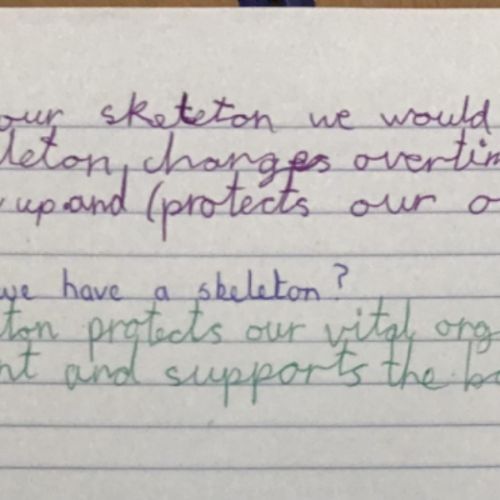 our sketeton we would
leton, changes overtim
up and (protects our o
we have a skeleton?
ton protects our vital org
nt and supports the bo